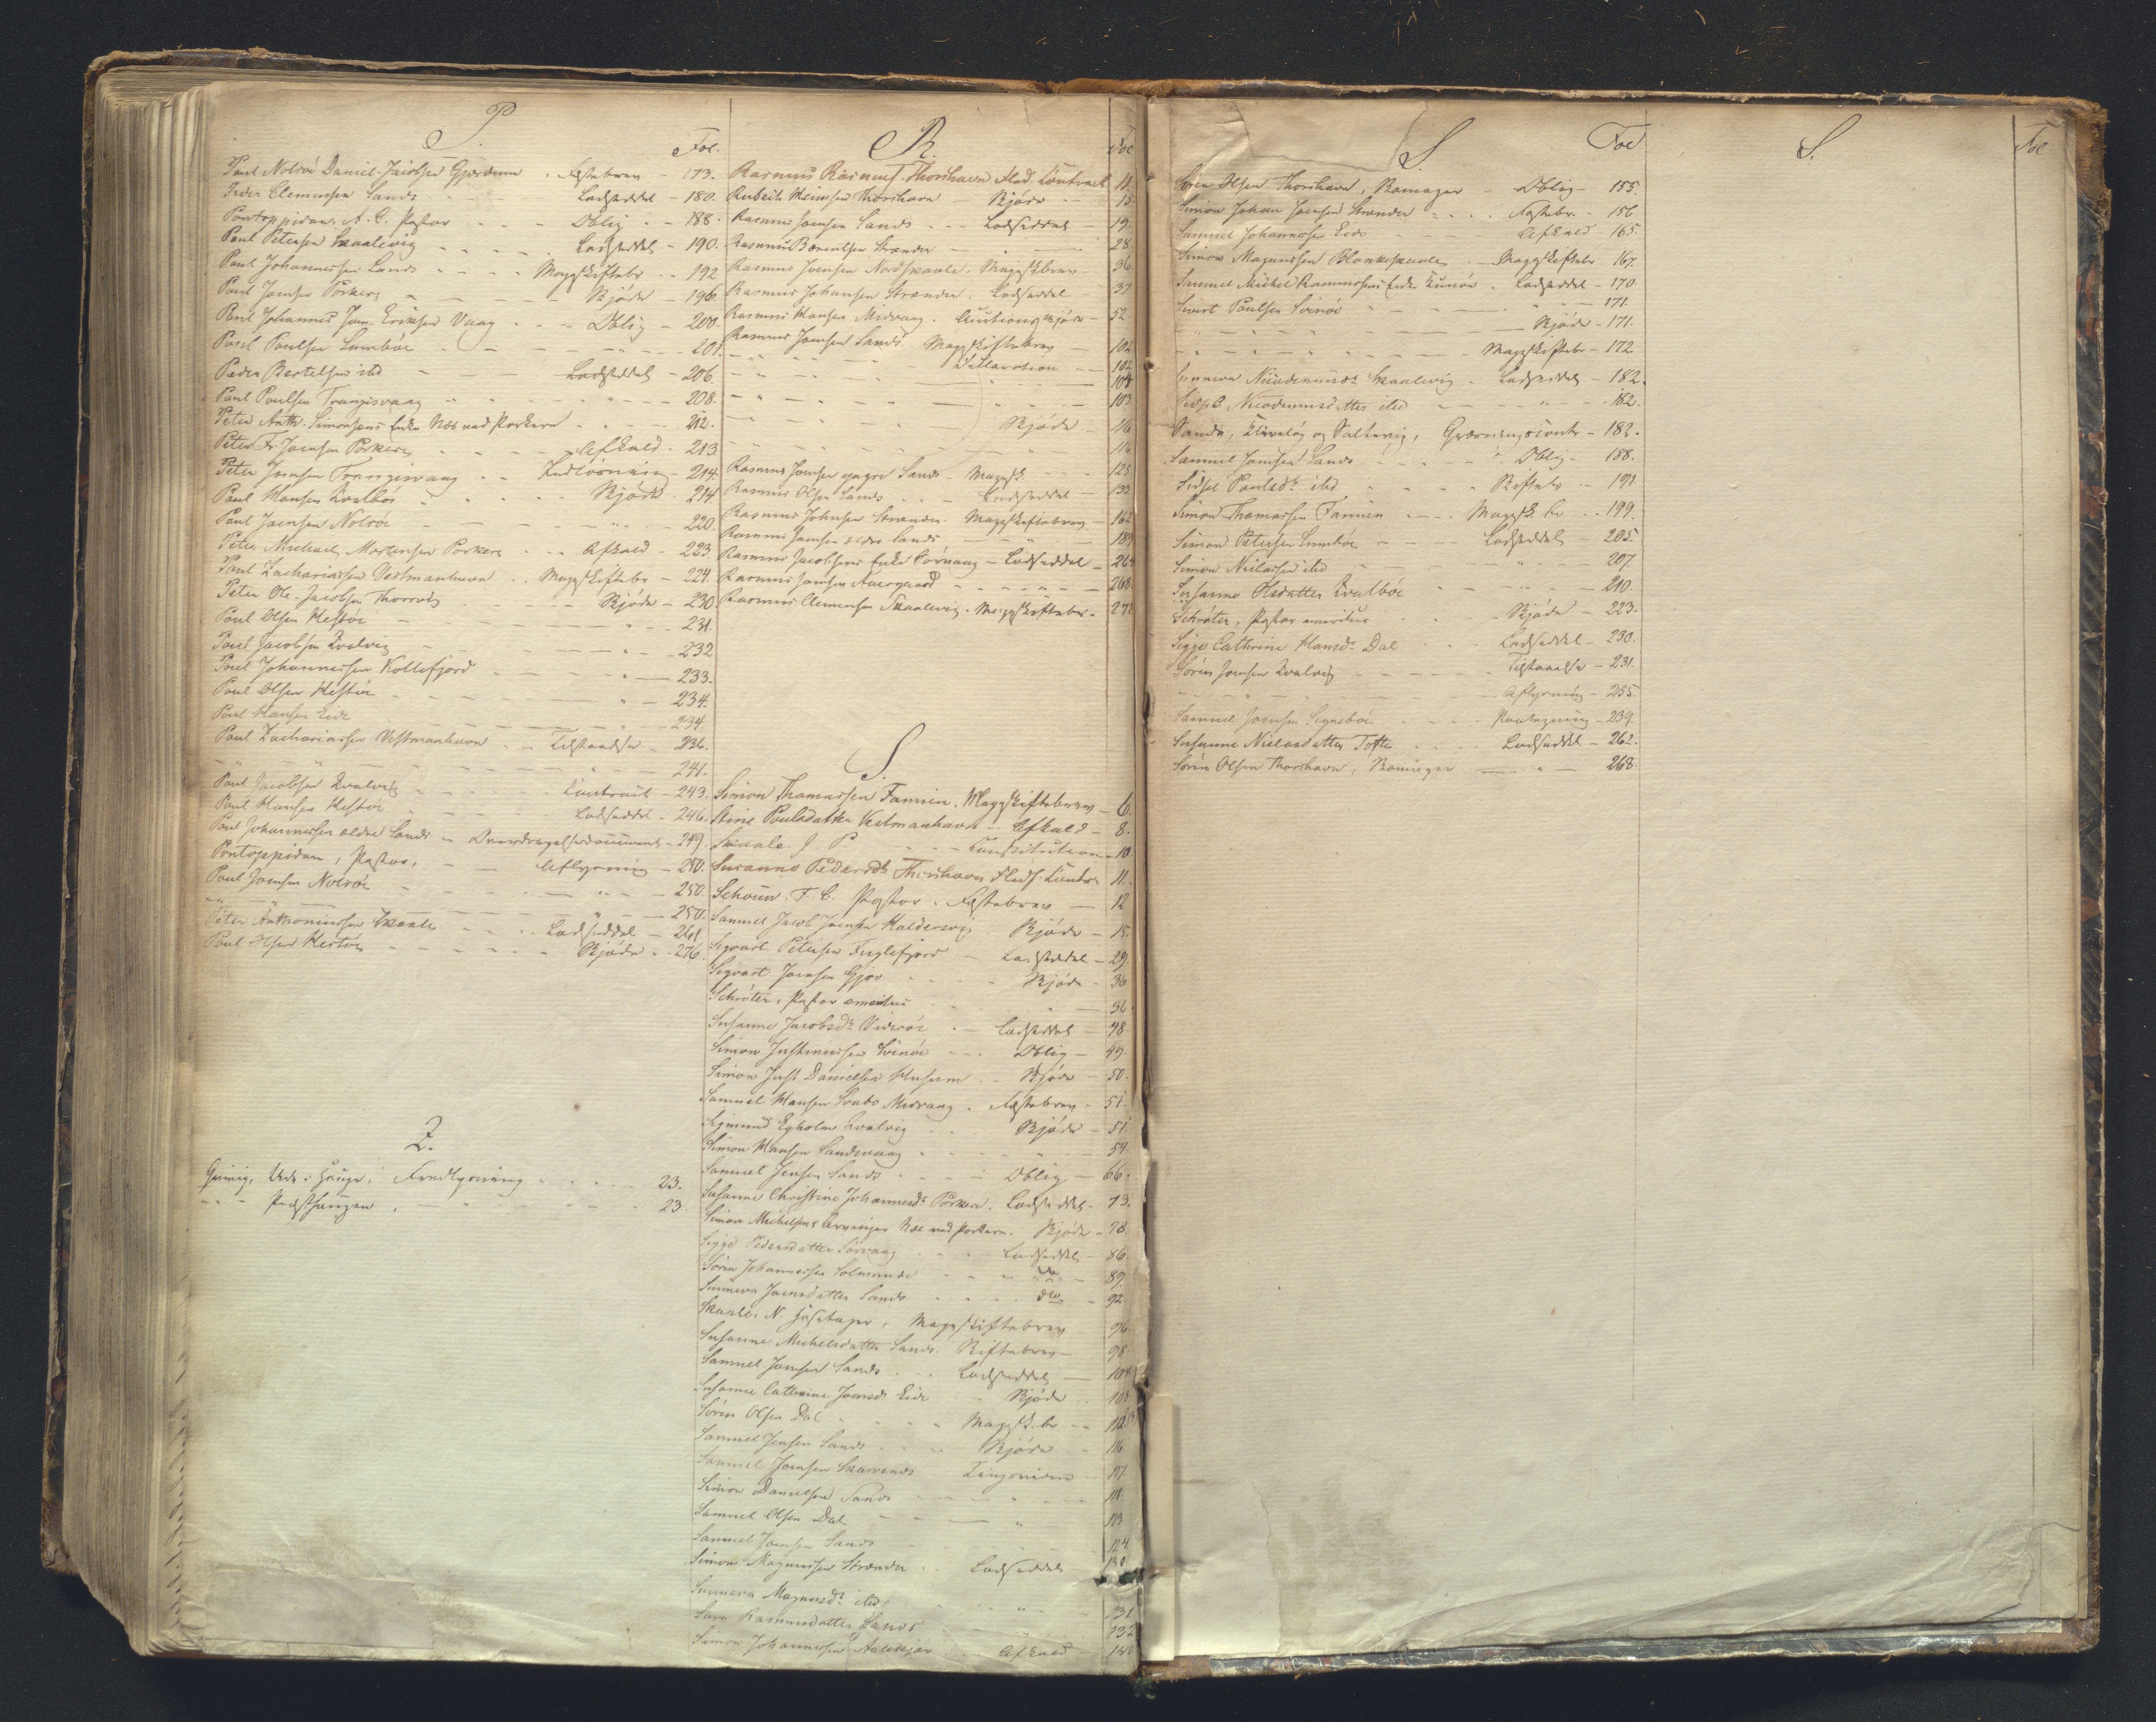 P.
Fol.
Poul Nolsöe Daniel Jacobsen Gjerdum - Fæstebrev - 173.
Peder Clementsen Sands - Ladseddel - 180.
Pontoppidan, A. C. Pastor - Oblig - 188.
Poul Petersen Skaalevig - Ladseddel - 190.
Poul Johannessen Sands - Mageskiftebr - 192
Poul Joensen Porkere - Skjöde - 196.
Poul Johannes Joen Eriksen Vaag - Oblig - 200.
Poul Poulsen Sumböe - " - 201.
Peder Bertelsen ibd - Ladseddel - 206.
Poul Poulsen Trangisvaag - " - 208.
Peter Anth. Simonsens Enke Næs ved Porkere - 212.
Peter Fr. Joensen Porkere - Afkald - 213
Peter Joensen Trangisvaag - Indlösning - 214.
Poul Hansen Qvalböe - Skjöde - 214
Poul Joensen Nolsöe - " - 220.
Peter Michael Mortensen Porkere - Afkald - 223.
Poul Zachariassen Vestmanhavn - Mageskiftebr - 224.
Peter Ole Jacobsen Thorsvig - Skjöde - 230.
Poul Olsen Hestöe - " - 231.
Poul Jacobsen Qvalvig - " - 232
Poul Johannessen Kollefjord - " - 233.
Poul Olsen Hestöe - " - 234.
Poul Hansen Eide - 234
Poul Zachariassen Vestmanhavn - Tilstaaelse - 236.
" - " - " - 241.
Poul Jacobsen Qvalvig - Contract - 243.
Poul Hansen Hestöe - Ladseddel - 246.
Poul Johannessen ældre Sands - Overdragelsesdocument - 249.
Pontoppidan, Pastor, - Aflysning - 250.
Poul Joensen Nolsöe - " - 250
" - " - 250.
Peter Anthoniussen Skaale - Ladseddel - 261
Poul Olsen Hestöe - Skjöde - 276.
Q.
23.
" - 23.
R.
Fol
Rasmus Rasmuss. Thorshavn Fled. Contract 11.
Heinesen Thorshavn - Skjöde - 15
Rasmus Joensen Sands - Ladseddel - 19.
Rasmus Berentsen Strænder - 28.
Rasmus Joensen Nordskaale. Magesk.brev - 36.
Rasmus Johansen Strænder. Ladseddel - 37
Rasmus Hansen Midvaag. Auctionsskjöde - 52
Rasmus Joensen Sands. Mageskiftebrev - 102
" - " - Declaration - 102
" - 104
" - 103
" - Skjöde - 116
" - 116
Rasmus Joensen yngre Sands - Magesk. 125
Rasmus Olsen Sands - Ladseddel - 133
Rasmus Johnsen Strænder. Mageskiftebrev - 162
Rasmus Joensen ældre Sands - 189
Rasmus Jacobsens Enke Sörvaag - Ladseddel - 264
Rasmus Joensen - " - 268.
Rasmus Clementsen Skaalevig. Mageskiftebr. - 272
S.
Simon Thomassen Famien. Mageskiftebrev - 6.
Stine Poulsdatter Vestmanhavn - Afkald - 8.
Skaale J P - Constitution - 10.
Susanne Pedersdr Thorshavn Fledf. Contr. 11.
Schouw F. C. Pastor. Fæstebrev - 12
Samuel Jacob Joensen Haldersvig - Skjöde - 15.
Sigvart Petersen Fuglefjord - Ladseddel - 29.
Sigvart Joensen Gjov - Skjöde - 36
Schröter, Pastor emeritus - 36
Susanne Jacobsdr Videröe - Ladseddel - 48
Simon Justinussen Svinöe - Oblig - 49.
Simon Just Danielsen Husum - Skjöde - 50.
Samuel Hansen Svabo Midvaag. Fæstebrev - 51.
Sigmund Egholm Qvalvig - Skjöde - 51.
Simon Hansen Sandevaag - " - 54.
Samuel Jensen Sands - Oblig - 66.
Susanne Christine Johannesdr Porkere. Ladseddel - 73.
Simon Michelsens Arvinger Næs ved Porkere. Skjöde - 78.
Sigge Pedersdatter Sörvaag - Ladseddel - 86.
Sören Johannessen Solmunde - do - 89.
Sunneva Joensdatter Sands - do - 92
Skaale. N. Huusetager, Mageskiftebrev 96
Susanne Michelsdatter Sands. Skiftebrev - 98
Samuel Joensen Sands - Ladseddel - 104
Susanne Cathrine Joensdr Eide - Skjöde - 108
Sören Olsen Dal - Magesk.br - 112
Samuel Jensen Sands - Skjöde - 116
Samuel Joensen Skarvenes Tingsvidne - 117.
Simon Danielsen Sands - " - 118.
Samuel Olsen Dal - " 123
Samuel Joensen Sands - 124
Simon Magnussen Strænder - Ladseddel 130
Sunneva Magnusdr ibd. - " - 131
Sara Rasmusdatter Sands 132
Simon Johannessen - Afkald 140
S
Fol
Sören Olsen Thorshavn, Remager - Oblig - 155.
Simon Johan Joensen Strænder - Fæstebr. - 156
Samuel Johannessen Eide - Afkald - 165.
Simon Magnussen Blankskaale - Mageskiftebr - 167.
Samuel Michel Rasmussens Enke Kunöe. Ladseddel - 170.
Sivert Poulsen Svinöe - " - 171.
" - Skjöde - 171.
" - Mageskiftebr - 172
Sunneva Nicodemusdr Skaalevig - Ladseddel - 182.
Sidsel Nicodemusdatter ibd - " - 182.
Sands, og Saltevig, Græsningscontr - 183.
Samuel Joensen Sands - Oblig - 188.
Sidsel Poulsdr ibd - Skiftebr - 191
Simon Thomassen Famien - Magesk. br - 199.
Simon Petersen Sumböe - Ladseddel - 205.
Simon Niclassen ibd - " - 207
Susanne Olsdatter Qvalböe - " - 210.
Schröter, Pastor emeritus - Skjöde - 223.
Sigge Cathrine Hansdr Dal - Ladseddel - 230.
Sören Joensen Qvalvig - Tilstaaelse - 231.
" - Aflysning - 235
Samuel Joensen Signeböe - Paategning - 239.
Susanne Niclasdatter Tofte - Ladseddel - 262.
Sören Olsen Thorshavn, Remager - " - 268.
S.
Fol